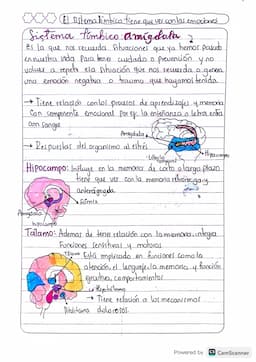 El Sistema límbico tiene que ver con las emociones
Sistema límbico: amígdala
Es la que nos recuerda situaciones que ya hemos pasado
en nuestra vida para tener cuidado o prevención y no
volver a repetir esa situación que nos recuerda o genera
una emoción negativa o trauma que hayamos tenido.
→ Tiene relación con los procesos de aprendizajes y memoria
con componente emocional por ej: la enseñanza o letra entra
con sangre
Amígdala
→ Respuestas del organismo al estrés
Hipocampo
Hipocampo: Influye en la memoria de corto o largo plazo
tiene que ver con la memoria retrógrada y
anterógrada
Fórnix
Amígdala
hipocampo
Tálamo: Además de tiene relación con la memoria, integra
Funciones sensitivas y motoras
Tálamo
Está implicado en funciones como la
atención, el lenguaje, la memoria, y función
ejecutiva, comportamientos
Hipotálamo
→ Tiene relación a los mecanismos
dolorosos.
Powered by CS CamScanner